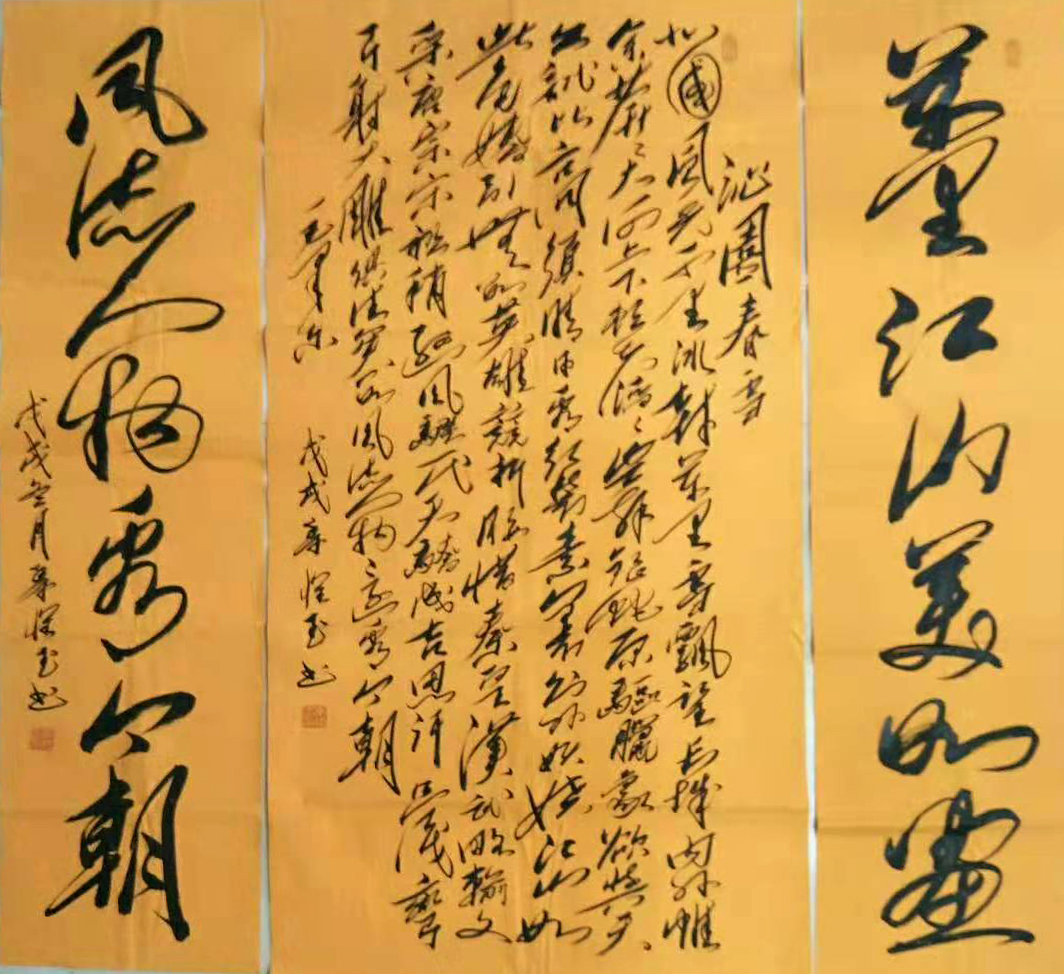 萬里江山美如畫
沁園春雪
北國風光千里冰封萬里雪飄望長城内外惟
余莽々大河上下頓失滔々山舞銀蛇原驅臘象欲與天
公試比高須晴日看紅裝素裹分外妖嬈江山如
此多嬌引無數英雄競折腰惜秦皇漢武略輸文
采唐宗宋祖稍遜風騷一代天驕成吉思汗只識彎
弓射大雕俱往矣數風流人物還看今朝
毛澤東
戊戌 玉书
風流人物看今朝
戊戌冬月 玉书